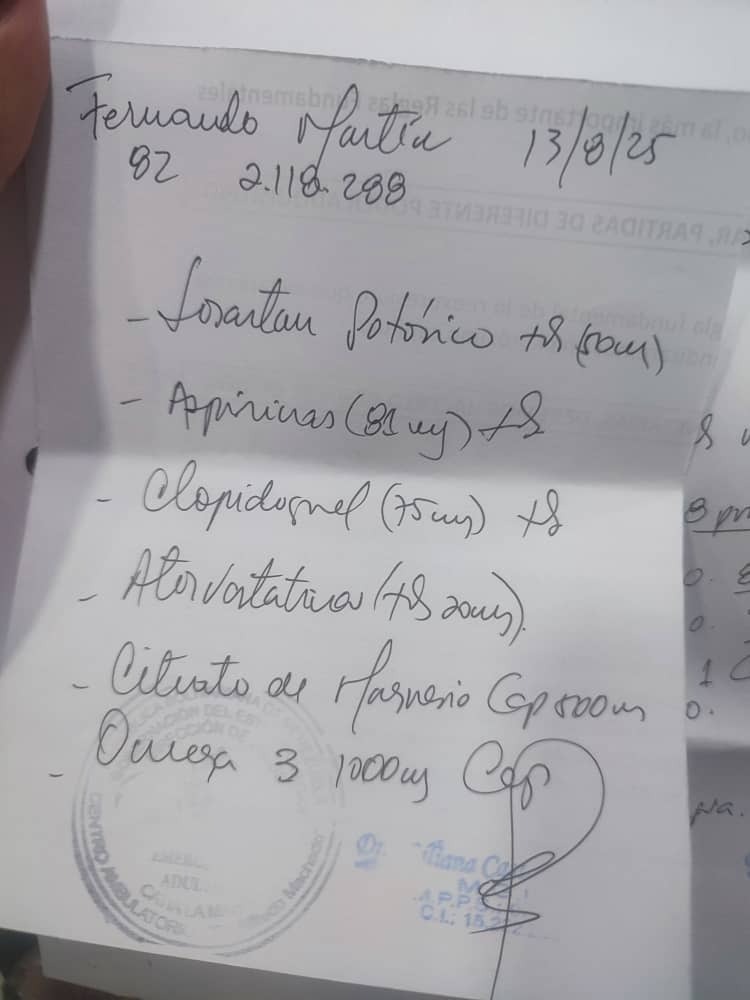 Fernando Martín 13/8/25
82 2.118.288
- Losartan Potásico tS (50mg)
- Aspirinas (81 mg) tS
- Clopidogrel (75mg) tS
- Atorvastatina (tS 20mg).
- Citrato de Magnesio Cap 500mg
- Omega 3 1000mg Cap
CENTRO AMBULATORIO
Machado
Dr.
C.I.: 15.2